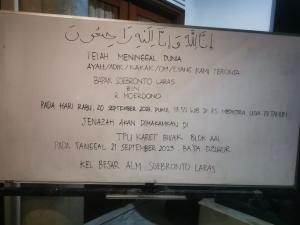 إنا لله وإنا إليه راجعون
TELAH MENINGGAL DUNIA
AYAH/ADIK/KAKAK/OM/EYANG KAMI TERCINTA
BAPAK SOEBRONTO LARAS
BIN
R. MOERDONO
PADA HARI RABU, 20 SEPTEMBER 2023, PUKUL WIB DI RS MEDISTRA USIA 79 TAHUN
JENAZAH AKAN DIMAKAMKAN DI
TPU KARET BIVAK BLOK AAI
PADA TANGGAL 21 SEPTEMBER 2023 BA'DA DZUHUR
KEL BESAR ALM. SOEBRONTO LARAS